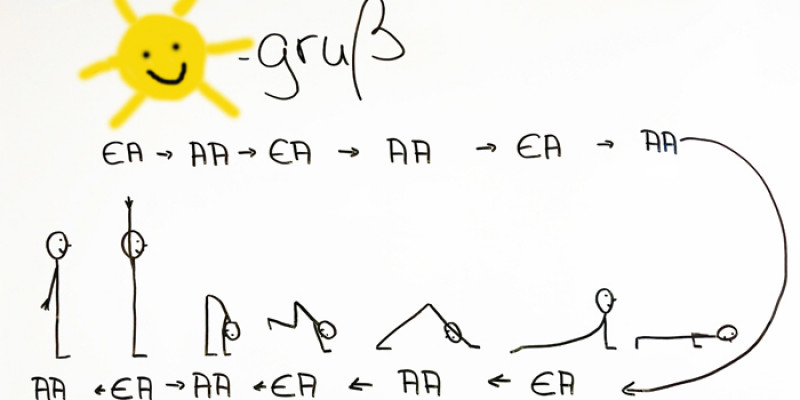 -gruß
EA → AA → EA → AA → EA → AA
AA ← EA → AA ← EA ← AA ← EA ←